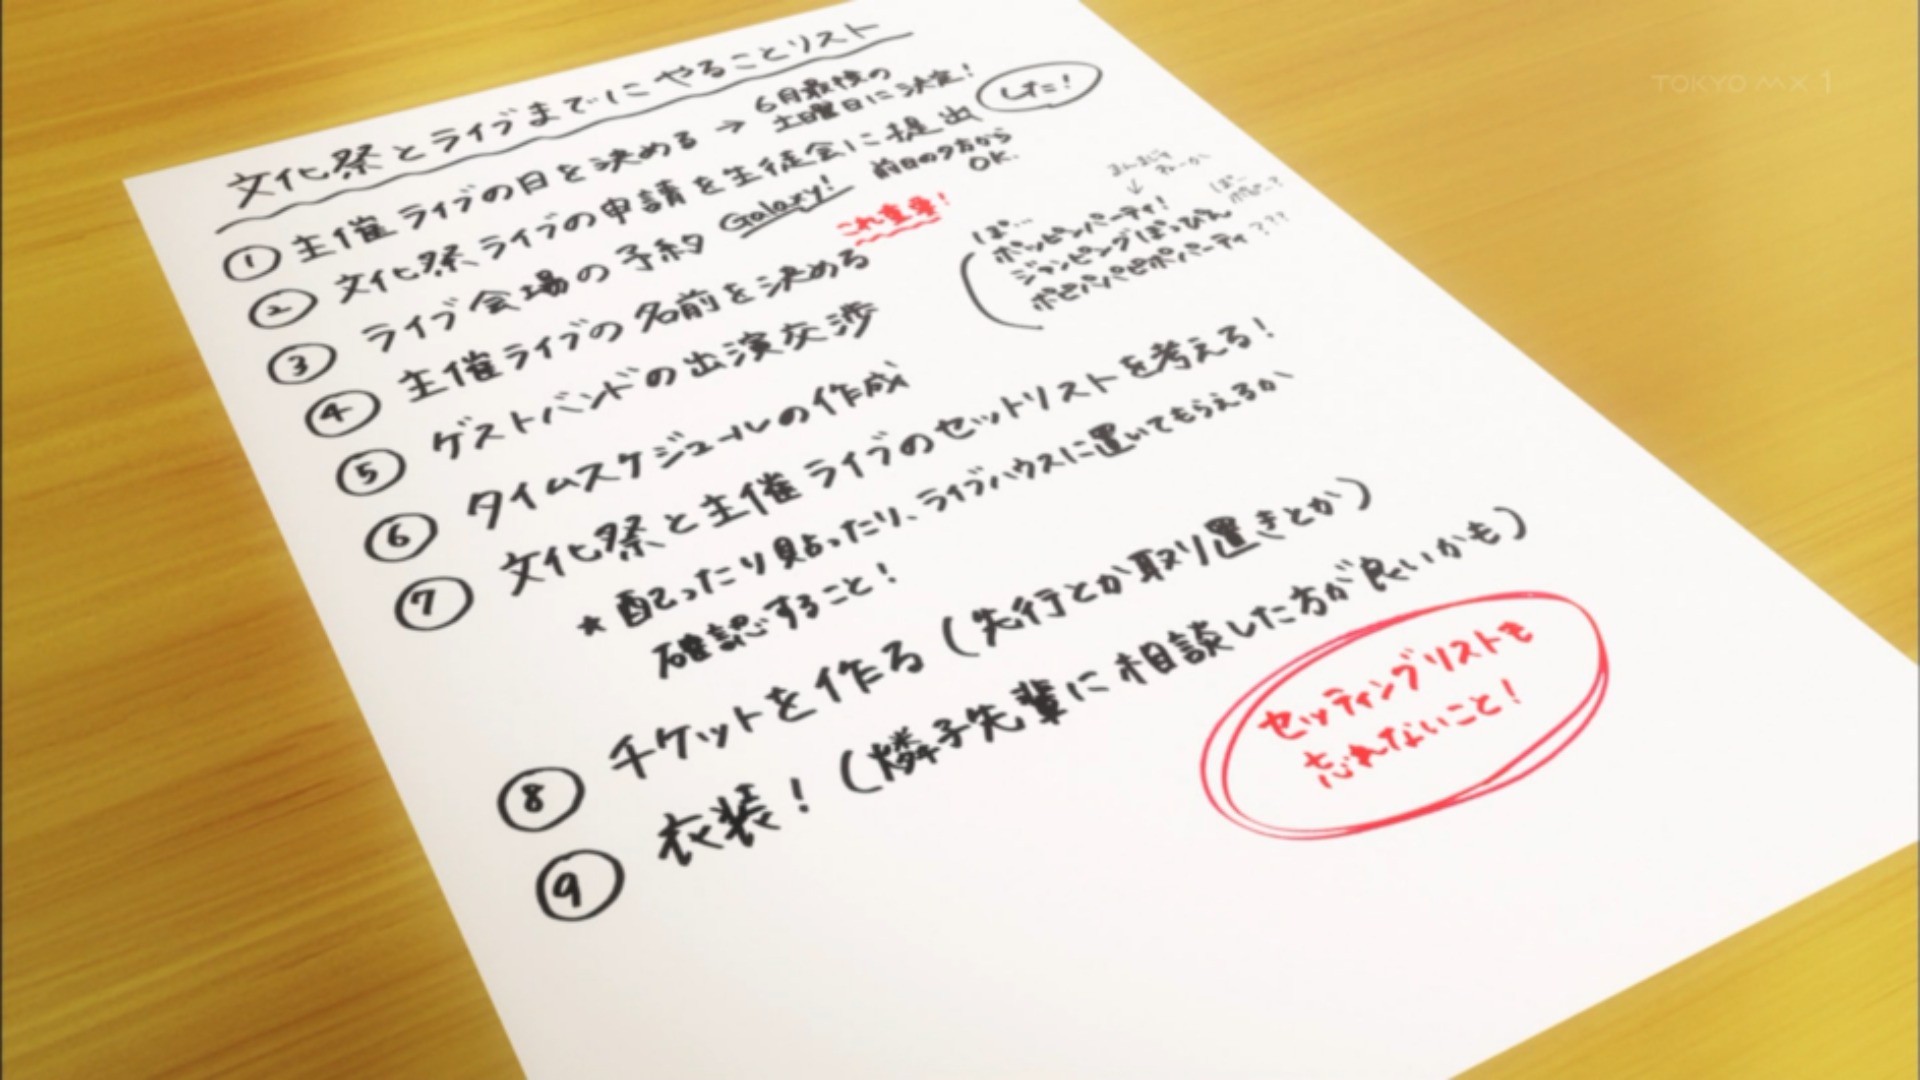 TOKYO MX 1
文化祭とライブまでにやることリスト
① 主催ライブの日を決める → 6月最後の
土曜日に決定!
② 文化祭ライブの申請を生徒会に提出 した!
③ ライブ会場の予約 Galaxy! 前日の夕方から
OK.
これ重要!
④ 主催ライブの名前を決める
ぽ…
ポッピンパーティ!
ジャンピングぽっぴん
ポピパパピポパーティ???
⑤ ゲストバンドの出演交渉
⑥ タイムスケジュールの作成
⑦ 文化祭と主催ライブのセットリストを考える!
★配ったり貼ったり、ライブハウスに置いてもらえるか
確認すること!
⑧ チケットを作る(先行とか取り置きとか)
⑨ 衣装!(燐子先輩に相談した方が良いかも)
セッティングリストも
忘れないこと!